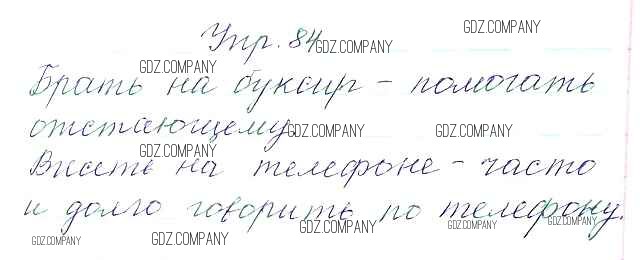 Упр. 84
Брать на буксир - помогать
отстающему.
Висеть на телефоне - часто
и долго говорить по телефону.
GDZ.COMPANY
GDZ.COMPANY
GDZ.COMPANY
GDZ.COMPANY
GDZ.COMPANY
GDZ.COMPANY
GDZ.COMPANY
GDZ.COMPANY
GDZ.COMPANY
GDZ.COMPANY
GDZ.COMPANY
GDZ.COMPANY